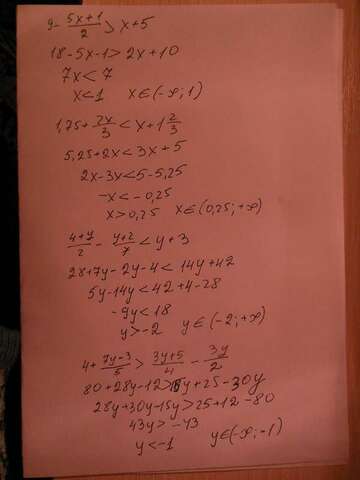 9 - (5x+1)/2 > x+5
18-5x-1>2x+10
7x<7
x<1 x∈(-∞;1)
1,75+2x/3<x+1 2/3
5,25+2x<3x+5
2x-3x<5-5,25
-x<-0,25
x>0,25 x∈(0,25;+∞)
(4+y)/2 - (y+2)/7 < y+3
28+7y-2y-4<14y+42
5y-14y<42+4-28
-9y<18
y>-2 y∈(-2;+∞)
4+(7y-3)/5 > (3y+5)/4 - 3y/2
80+28y-12>15y+25-30y
28y+30y-15y>25+12-80
43y>-43
y<-1 y∈(-∞;-1)